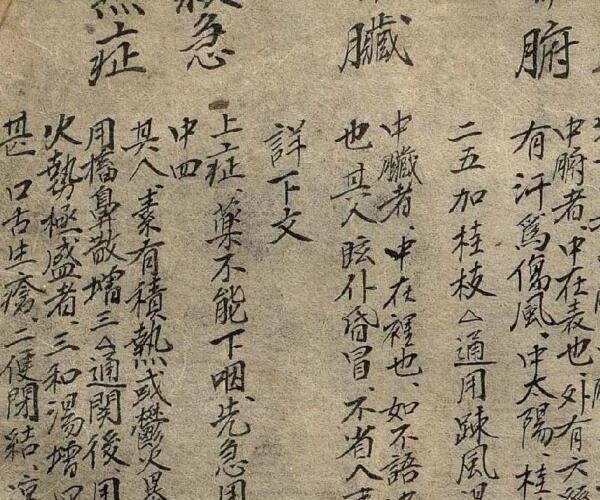 腑
中腑者、中在表也、外有六經
有汗爲傷風、中太陽、桂
二五加桂枝△通用疎風湯
臟
中臟者、中在裡也、如不語
也其人眩仆昏冒、不省人
詳下文
急
上症、藥不能下咽、先急用
中四
症
其人素有積熱或鬱火暴
用搐鼻散增三△通關後用
火勢極盛者、三和湯增四
甚口舌生瘡、二便閉結、